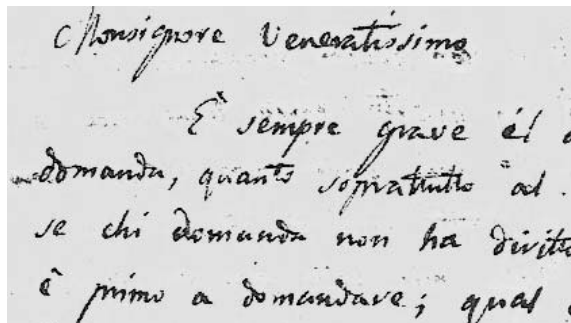 Monsignore Veneratissimo
E' sempre grave él
domanda, quanto soprattutto al
se chi domanda non ha diritto
è primo a domandare; qual